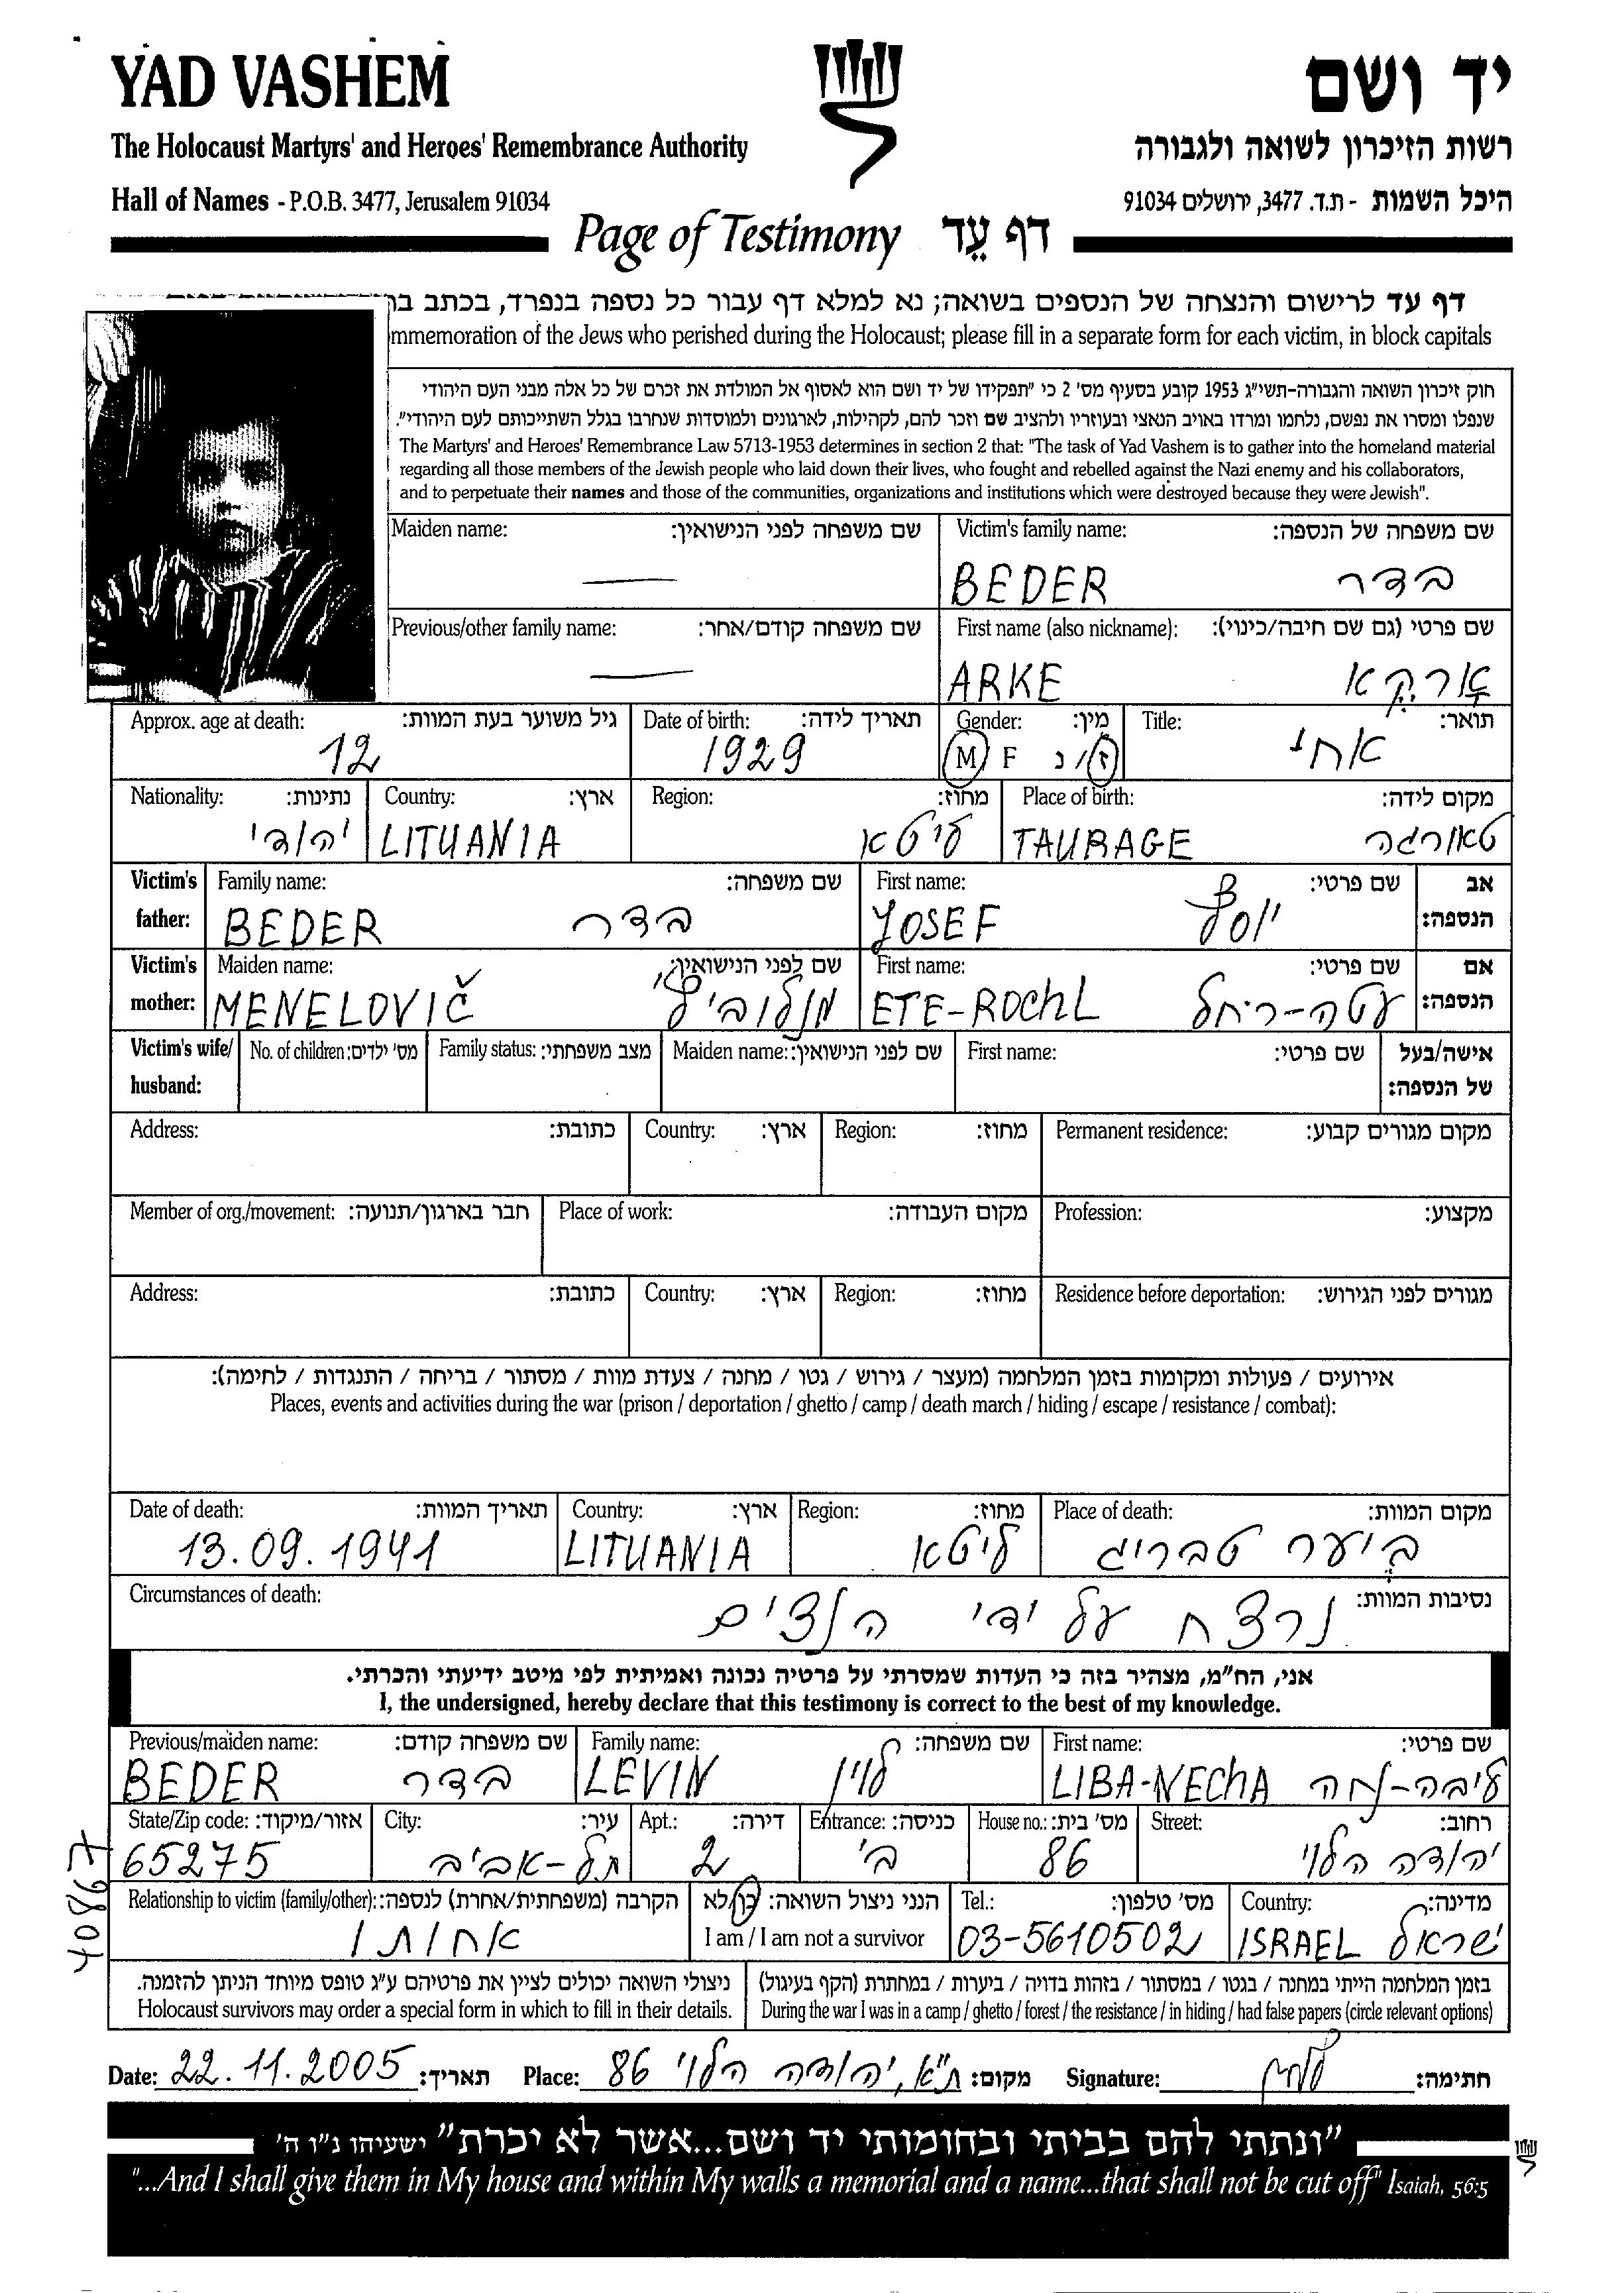 YAD VASHEM
יד ושם
The Holocaust Martyrs' and Heroes' Remembrance Authority
רשות הזיכרון לשואה ולגבורה
Hall of Names - P.O.B. 3477, Jerusalem 91034
היכל השמות - ת.ד. 3477, ירושלים 91034
Page of Testimony דף עֵד
דף עד לרישום והנצחה של הנספים בשואה; נא למלא דף עבור כל נספה בנפרד, בכתב
mmemoration of the Jews who perished during the Holocaust; please fill in a separate form for each victim, in block capitals
חוק זיכרון השואה והגבורה-תשי"ג 1953 קובע בסעיף מס' 2 כי "תפקידו של יד ושם הוא לאסוף אל המולדת את זכרם של כל אלה מבני העם היהודי
שנפלו ומסרו את נפשם, נלחמו ומרדו באויב הנאצי ובעוזריו ולהציב שם וזכר להם, לקהילות, לארגונים ולמוסדות שנחרבו בגלל השתייכותם לעם היהודי".
The Martyrs' and Heroes' Remembrance Law 5713-1953 determines in section 2 that: "The task of Yad Vashem is to gather into the homeland material
regarding all those members of the Jewish people who laid down their lives, who fought and rebelled against the Nazi enemy and his collaborators,
and to perpetuate their names and those of the communities, organizations and institutions which were destroyed because they were Jewish".
Maiden name: שם משפחה לפני הנישואין: Victim's family name: שם משפחה של הנספה:
BEDER בדר
Previous/other family name: שם משפחה קודם/אחר: First name (also nickname): שם פרטי (גם שם חיבה/כינוי):
ARKE אָרקֶא
Approx. age at death: גיל משוער בעת המוות: Date of birth: תאריך לידה: Gender: מין: Title: תואר:
12 1929 M F ז/נ אחי
Nationality: נתינות: Country: ארץ: Region: מחוז: Place of birth: מקום לידה:
יהודי LITUANIA ליטא TAURAGE טאורגה
Victim's father: Family name: שם משפחה: First name: שם פרטי: אב הנספה:
BEDER בדר YOSEF יוסף
Victim's mother: Maiden name: שם לפני הנישואין: First name: שם פרטי: אם הנספה:
MENELOVIČ מנלוביץ' ETE-ROChL עטה-ריחל
Victim's wife/ husband: No. of children: מס' ילדים: Family status: מצב משפחתי: Maiden name: שם לפני הנישואין: First name: שם פרטי: אישה/בעל של הנספה:
Address: כתובת: Country: ארץ: Region: מחוז: Permanent residence: מקום מגורים קבוע:
Member of org./movement: חבר בארגון/תנועה: Place of work: מקום העבודה: Profession: מקצוע:
Address: כתובת: Country: ארץ: Region: מחוז: Residence before deportation: מגורים לפני הגירוש:
אירועים / פעולות ומקומות בזמן המלחמה (מעצר / גירוש / גטו / מחנה / צעדת מוות / מסתור / בריחה / התנגדות / לחימה):
Places, events and activities during the war (prison / deportation / ghetto / camp / death march / hiding / escape / resistance / combat):
Date of death: תאריך המוות: Country: ארץ: Region: מחוז: Place of death: מקום המוות:
13.09.1941 LITUANIA ליטא ביער טבריג
Circumstances of death: נסיבות המוות:
נרצח על ידי הנצים
אני, הח"מ, מצהיר בזה כי העדות שמסרתי על פרטיה נכונה ואמיתית לפי מיטב ידיעתי והכרתי.
I, the undersigned, hereby declare that this testimony is correct to the best of my knowledge.
Previous/maiden name: שם משפחה קודם: Family name: שם משפחה: First name: שם פרטי:
BEDER בדר LEVIN לוין LIBA-NEChA ליבה-נחה
State/Zip code: אזור/מיקוד: City: עיר: Apt.: דירה: Entrance: כניסה: House no.: מס' בית: Street: רחוב:
65275 תל-אביב 2 ב' 86 יהודה הלוי
40867
Relationship to victim (family/other): הקרבה (משפחתית/אחרת) לנספה: הנני ניצול השואה: כן/לא Tel.: מס' טלפון: Country: מדינה:
אחותו I am / I am not a survivor 03-5610502 ISRAEL ישראל
בזמן המלחמה הייתי במחנה / בגטו / במסתור / בזהות בדויה / ביערות / במחתרת (הקף בעיגול)
ניצולי השואה יכולים לציין את פרטיהם ע"ג טופס מיוחד הניתן להזמנה.
Holocaust survivors may order a special form in which to fill in their details.
During the war I was in a camp / ghetto / forest / the resistance / in hiding / had false papers (circle relevant options)
Date: 22.11.2005 תאריך: Place: ת"א, יהודה הלוי 86 מקום: Signature: חתימה:
"ונתתי להם בביתי ובחומותי יד ושם...אשר לא יכרת" ישעיהו נ"ו ה'
"...And I shall give them in My house and within My walls a memorial and a name...that shall not be cut off" Isaiah, 56:5